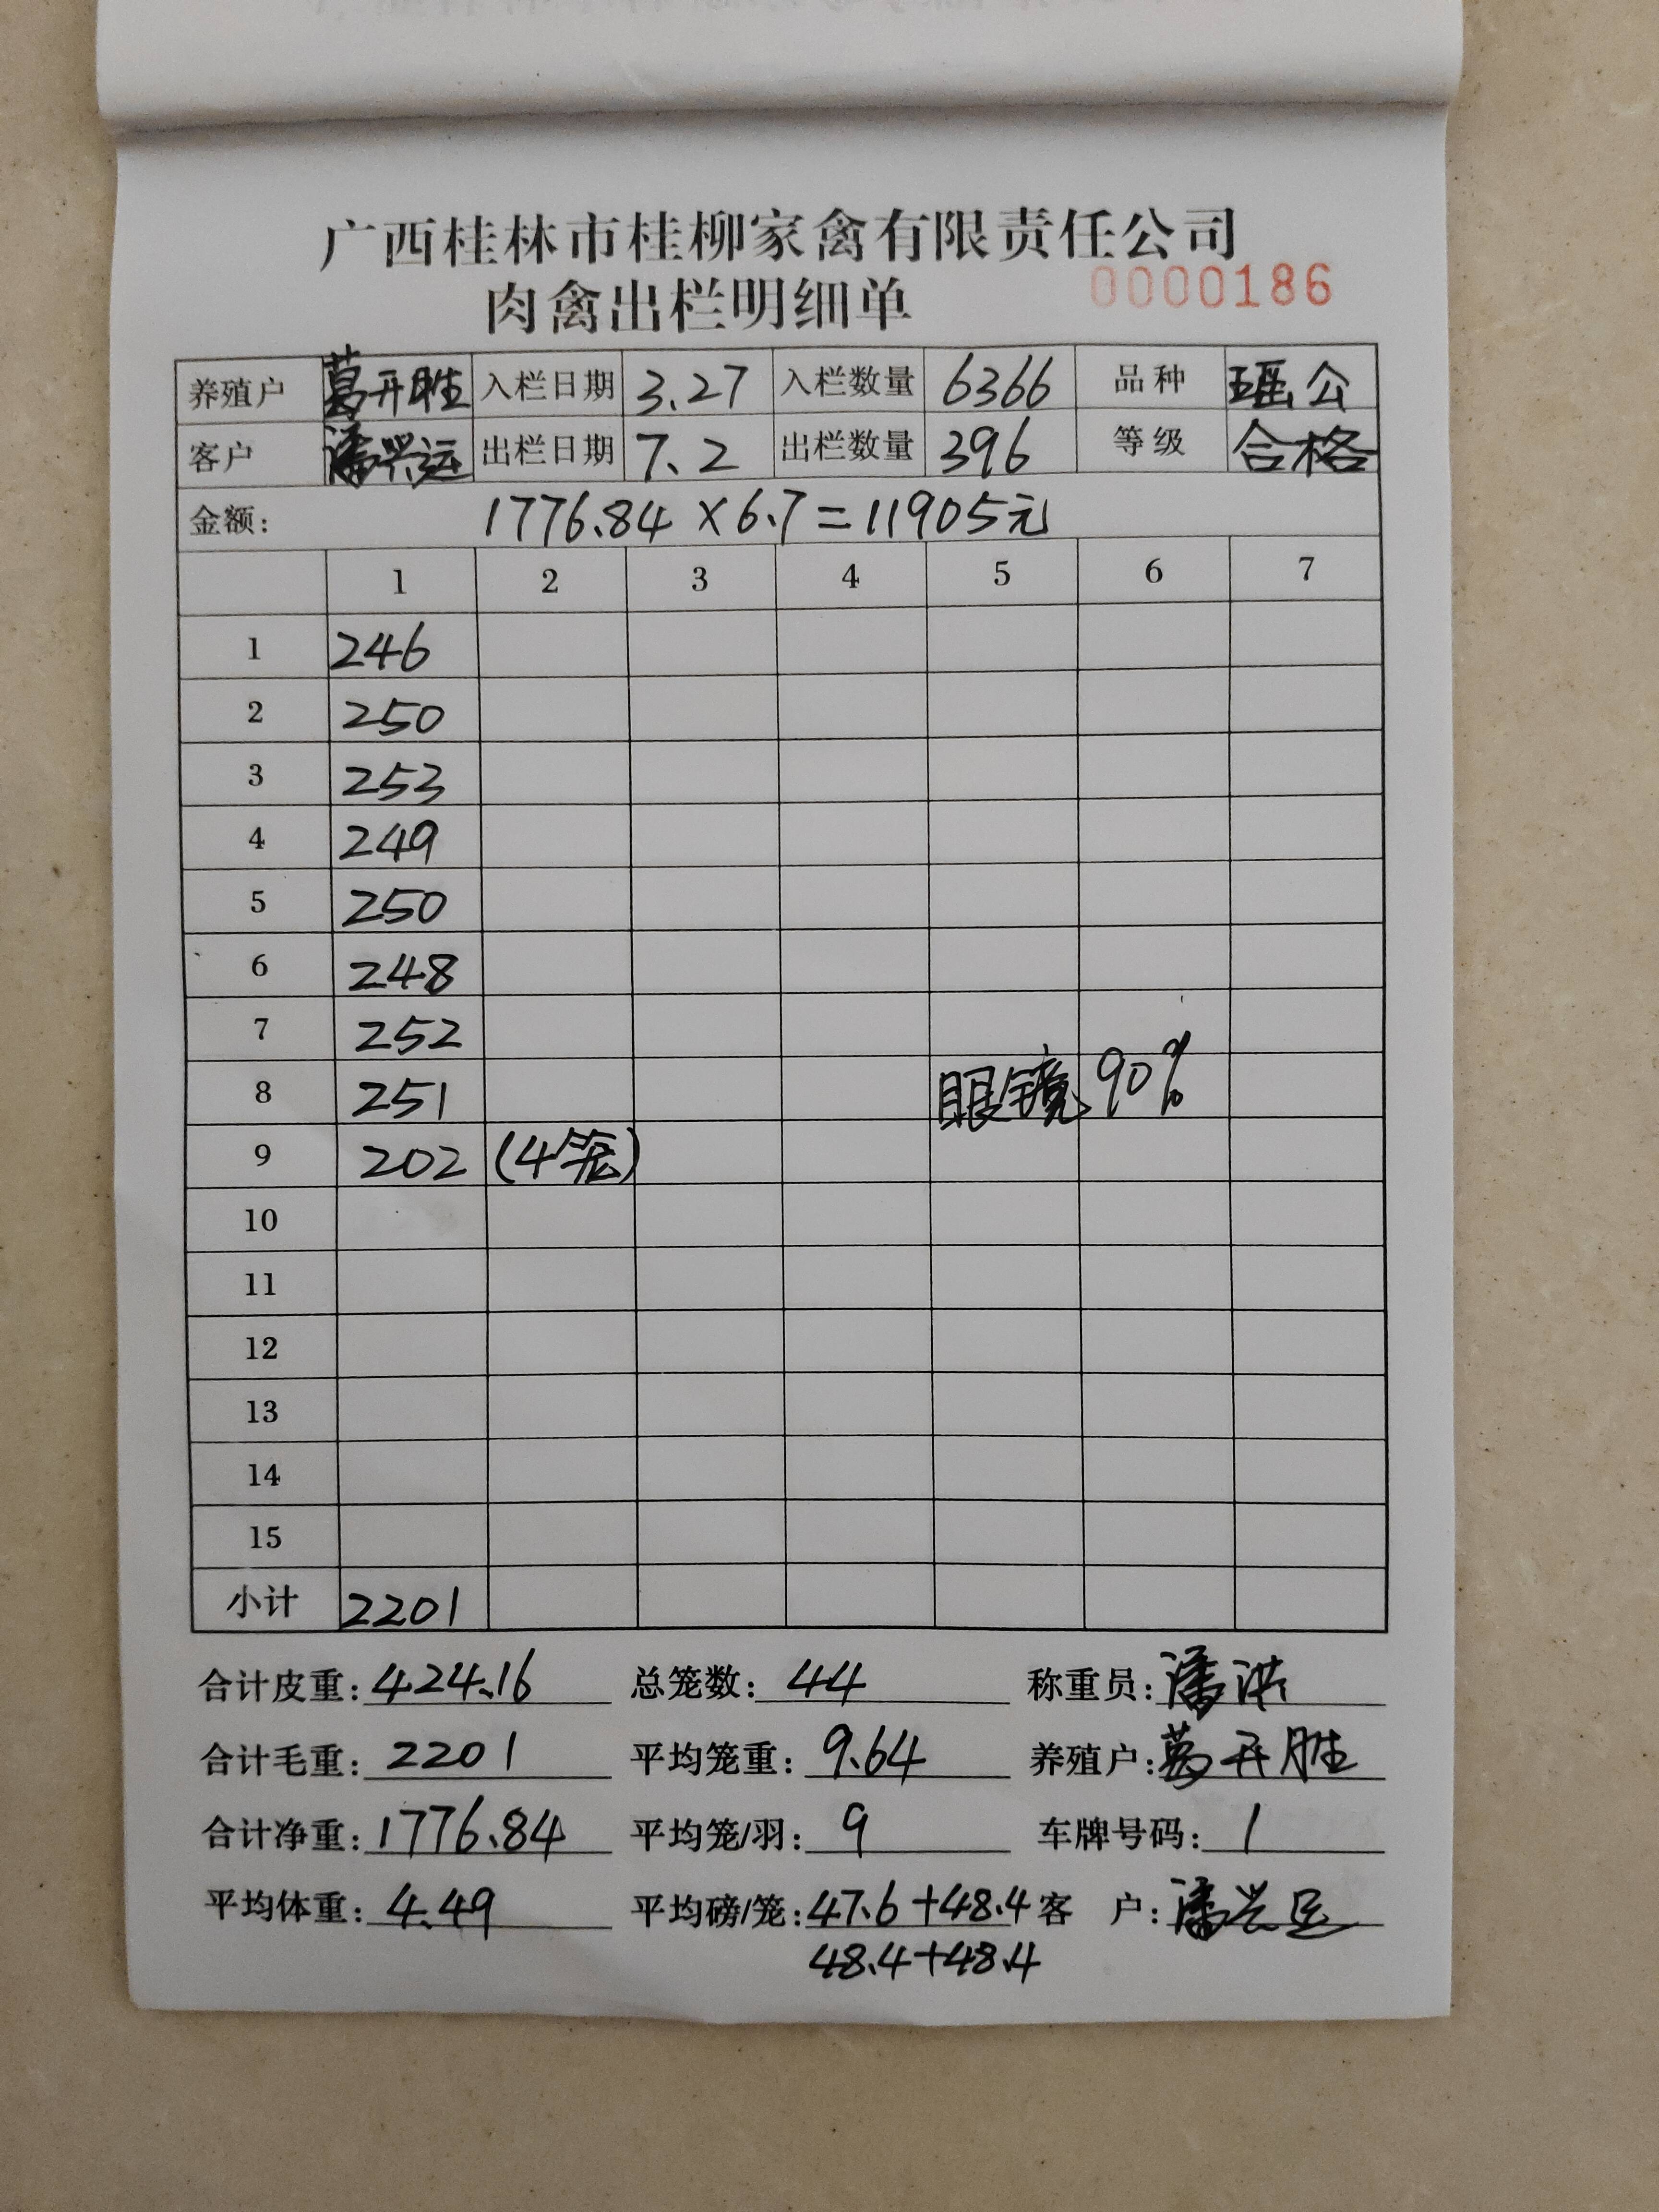 广西桂林市桂柳家禽有限责任公司
肉禽出栏明细单
0000186
养殖户 葛开胜 入栏日期 3.27 入栏数量 6366 品种 瑶公
客户 潘兴运 出栏日期 7.2 出栏数量 396 等级 合格
金额: 1776.84×6.7=11905元
1 2 3 4 5 6 7
1 246
2 250
3 253
4 249
5 250
6 248
7 252
8 251 眼镜90%
9 202 (4笼)
10
11
12
13
14
15
小计 2201
合计皮重: 424.16 总笼数: 44 称重员: 潘洪
合计毛重: 2201 平均笼重: 9.64 养殖户: 葛开胜
合计净重: 1776.84 平均笼/羽: 9 车牌号码: 1
平均体重: 4.49 平均磅/笼: 47.6+48.4 客 户: 潘兴运
48.4+48.4